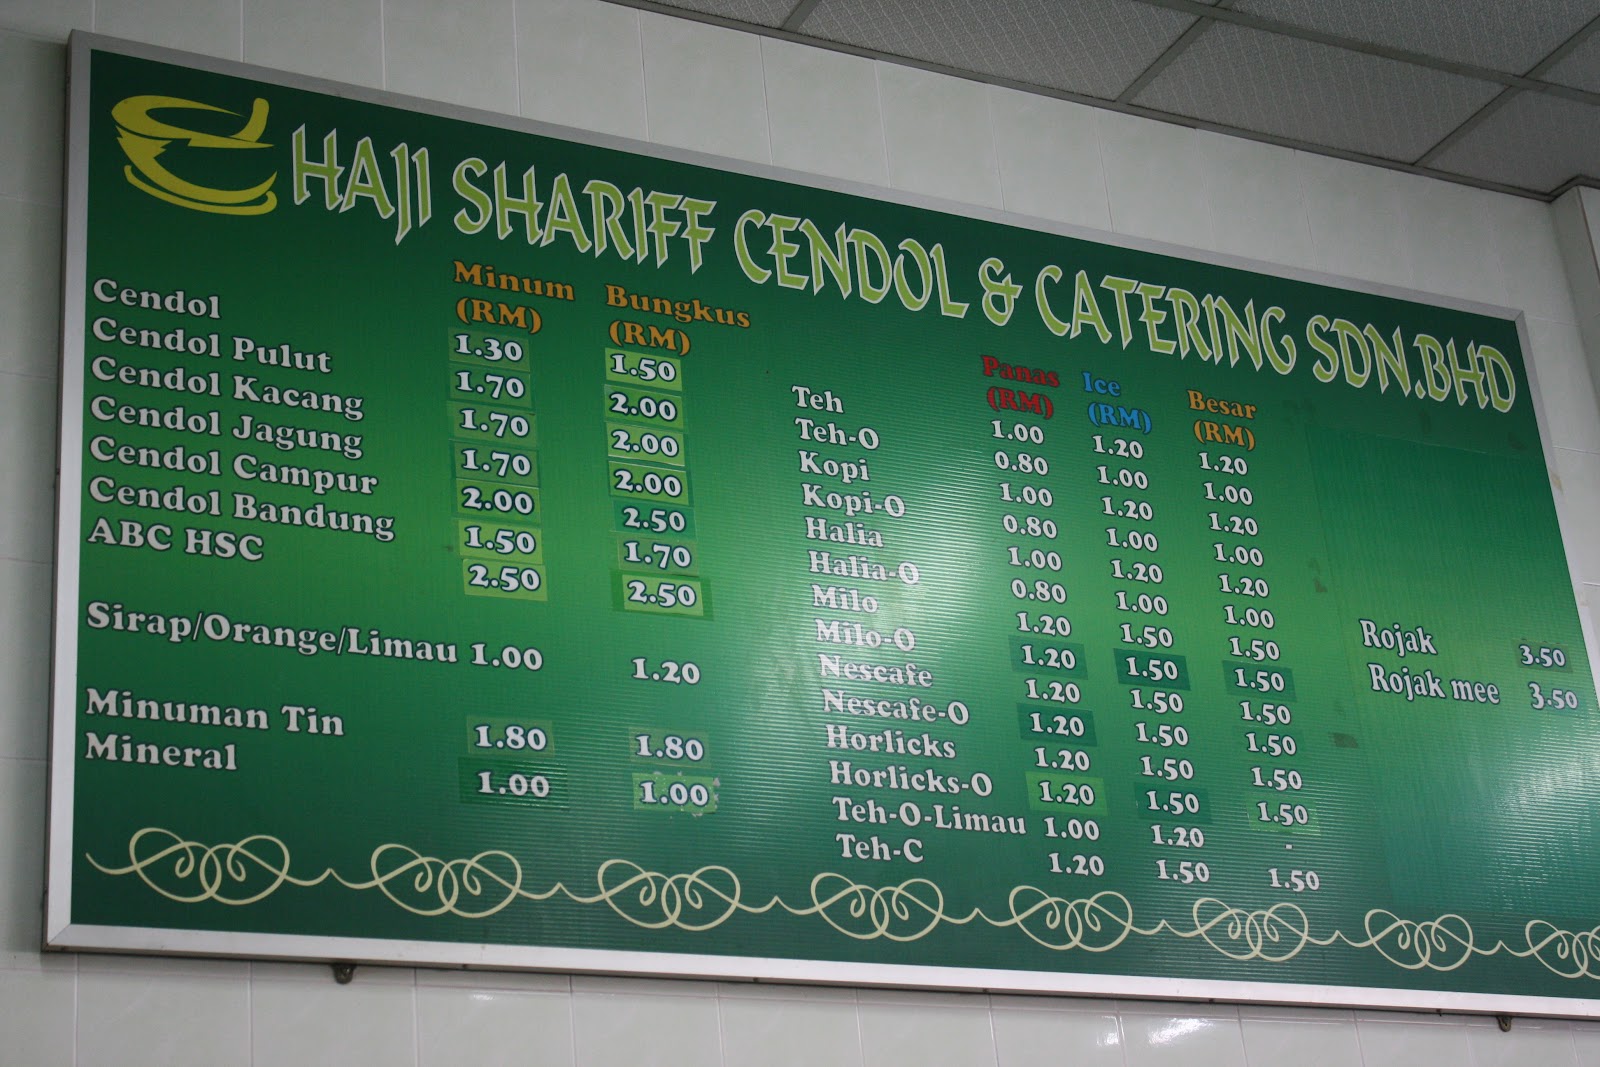 HAJI SHARIFF CENDOL & CATERING SDN.BHD
Minum (RM) Bungkus (RM)
Cendol 1.30 1.50
Cendol Pulut 1.70 2.00
Cendol Kacang 1.70 2.00
Cendol Jagung 1.70 2.00
Cendol Campur 2.00 2.50
Cendol Bandung 1.50 1.70
ABC HSC 2.50 2.50
Sirap/Orange/Limau 1.00 1.20
Minuman Tin 1.80 1.80
Mineral 1.00 1.00
Panas (RM) Ice (RM) Besar (RM)
Teh 1.00 1.20 1.20
Teh-O 0.80 1.00 1.00
Kopi 1.00 1.20 1.20
Kopi-O 0.80 1.00 1.00
Halia 1.00 1.20 1.20
Halia-O 0.80 1.00 1.00
Milo 1.20 1.50 1.50
Milo-O 1.20 1.50 1.50
Nescafe 1.20 1.50 1.50
Nescafe-O 1.20 1.50 1.50
Horlicks 1.20 1.50 1.50
Horlicks-O 1.20 1.50 1.50
Teh-O-Limau 1.00 1.20 -
Teh-C 1.20 1.50 1.50
Rojak 3.50
Rojak mee 3.50